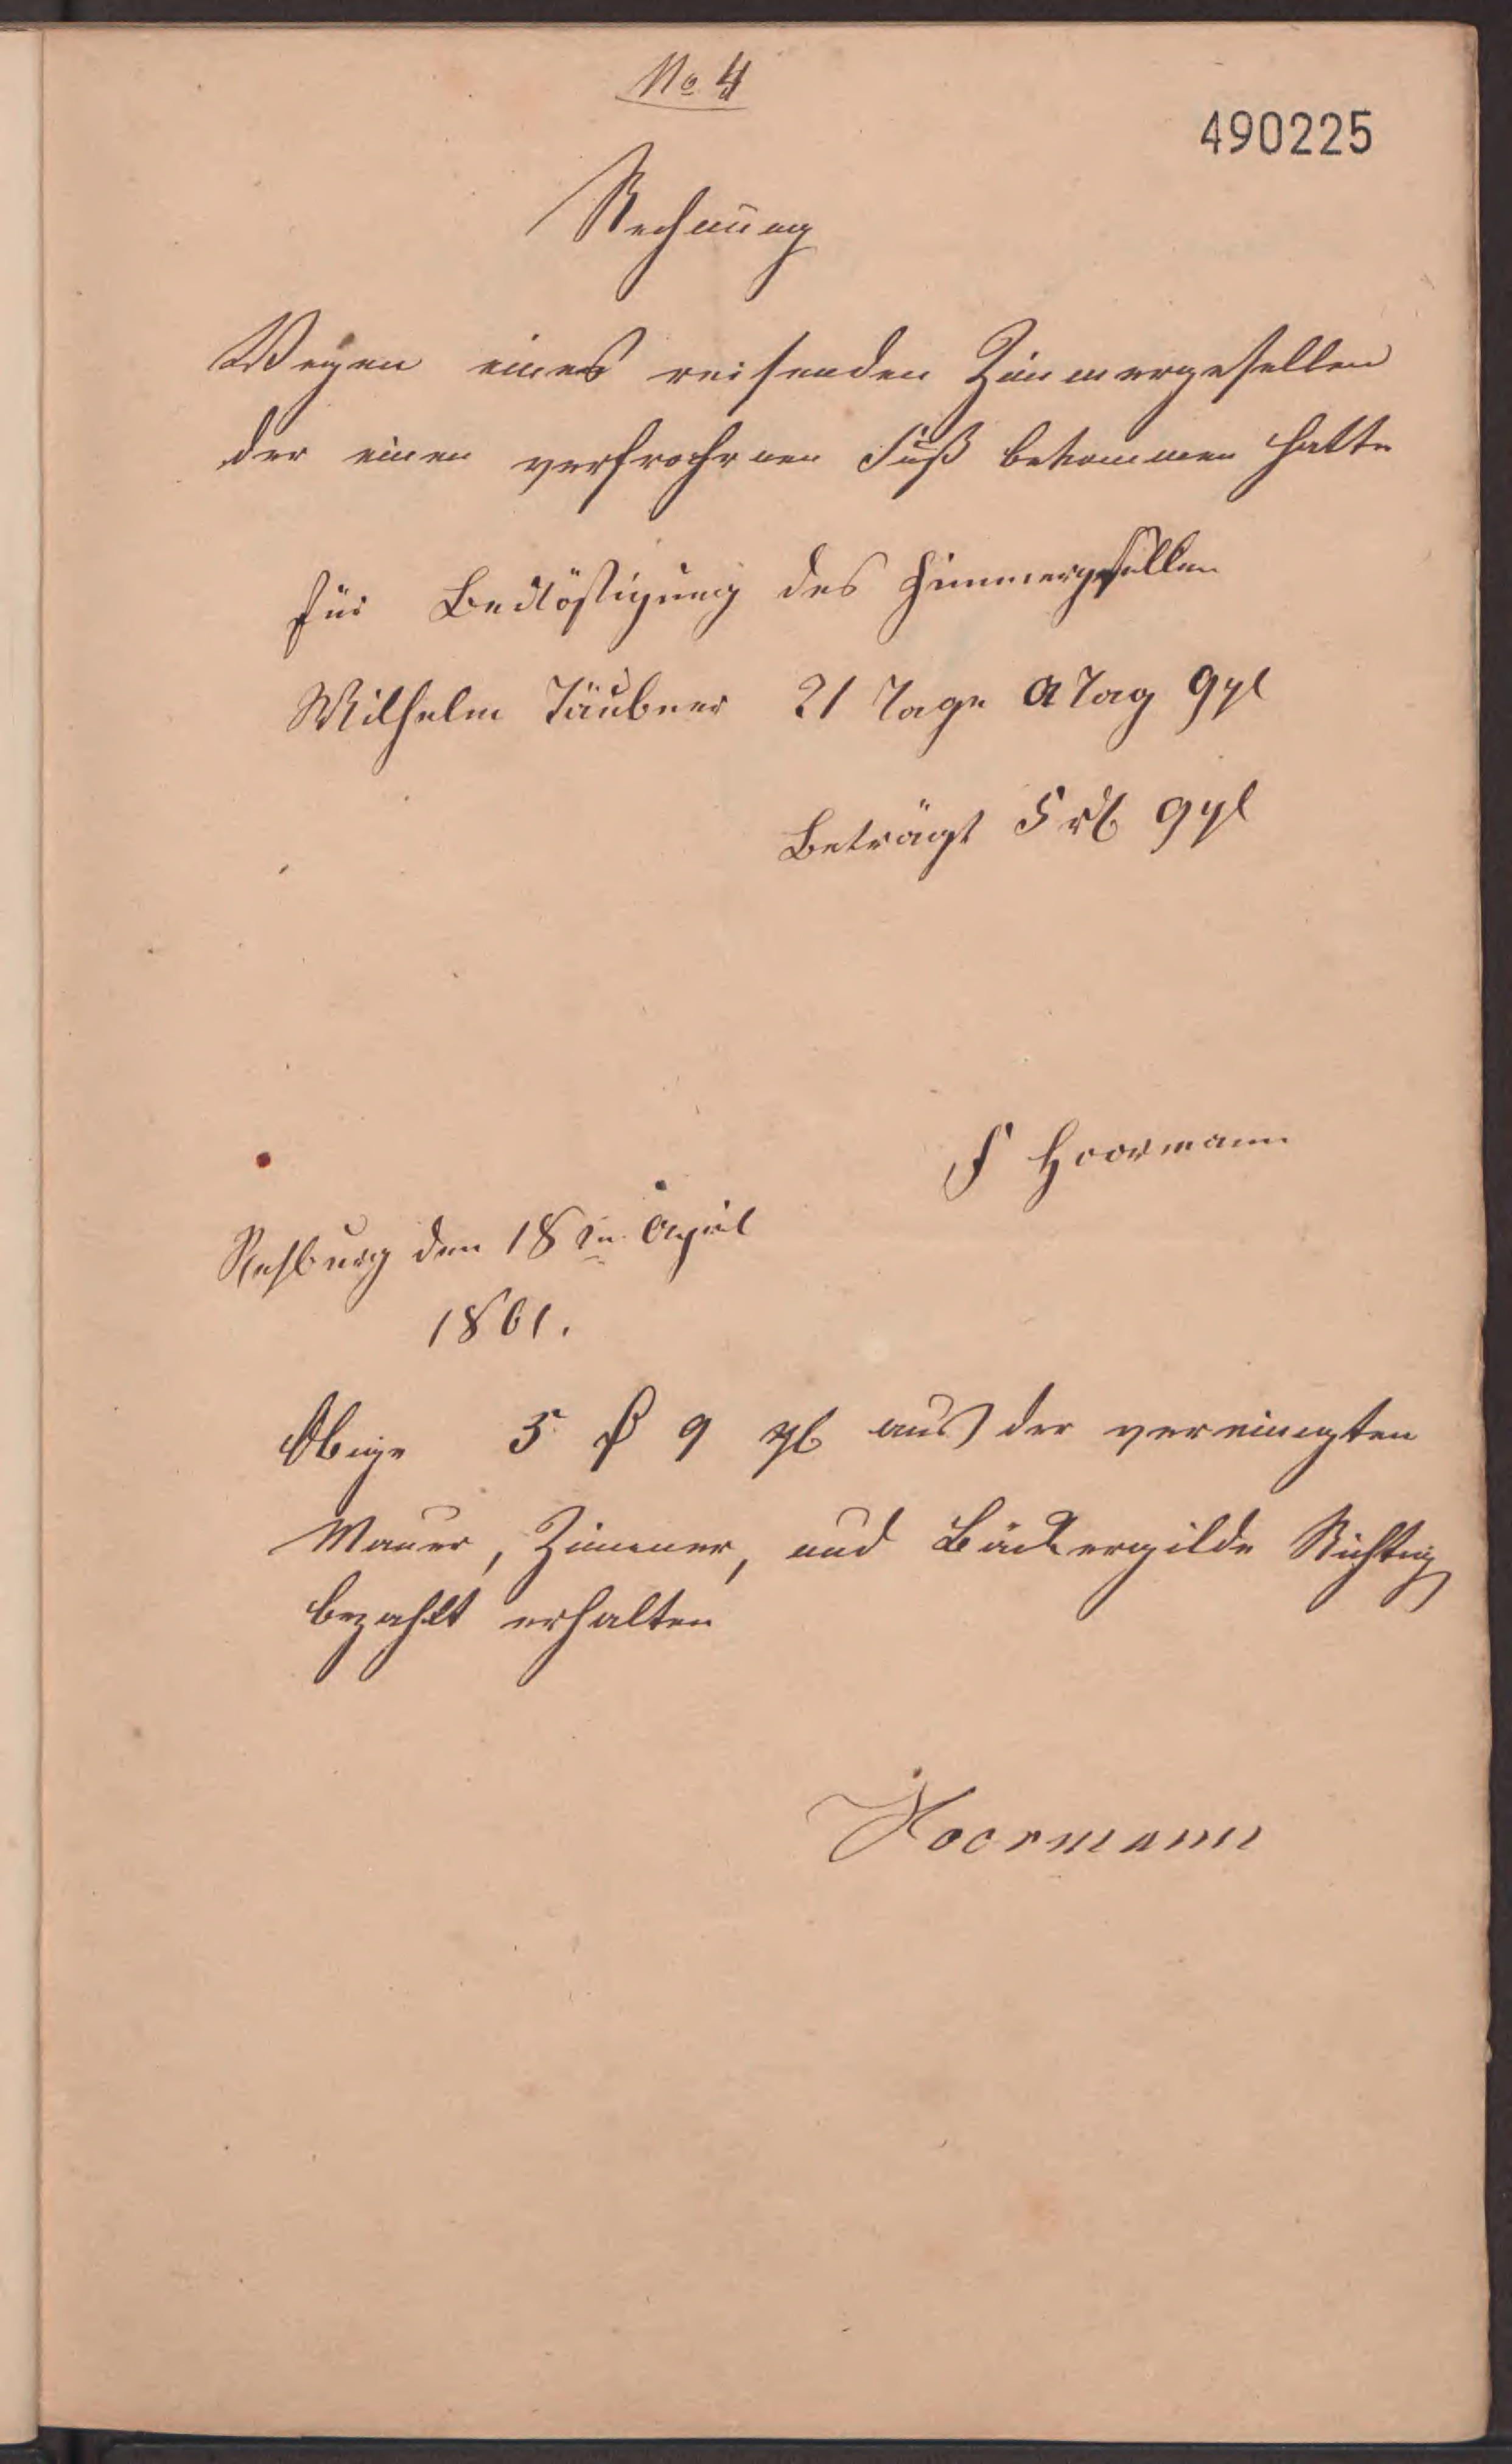 No 4
490225
Rechnung
Wegen eines reisenden Zimmergesellen
der einen verfrohrnen Fuß bekommen hatte
für Beköstigung des Zimmergesellen
Wilhelm Täubner 21 Tage a Tag 9 gl
Beträgt 5 rl 9 gl
F Hoormann
Rehburg den 18ten April
1861.
Obige 5 ₰ 9 gl aus der vereinigten
Mauer, Zimmer, und Bäckergilde Richtig
bezahlt erhalten
Hoormann